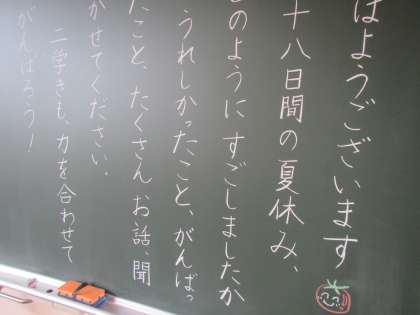 はようございます
十八日間の夏休み、
のように すごしましたか
うれしかったこと、がんばっ
たこと、たくさん お話、聞
かせてください。
二学きも、力を合わせて
がんばろう！